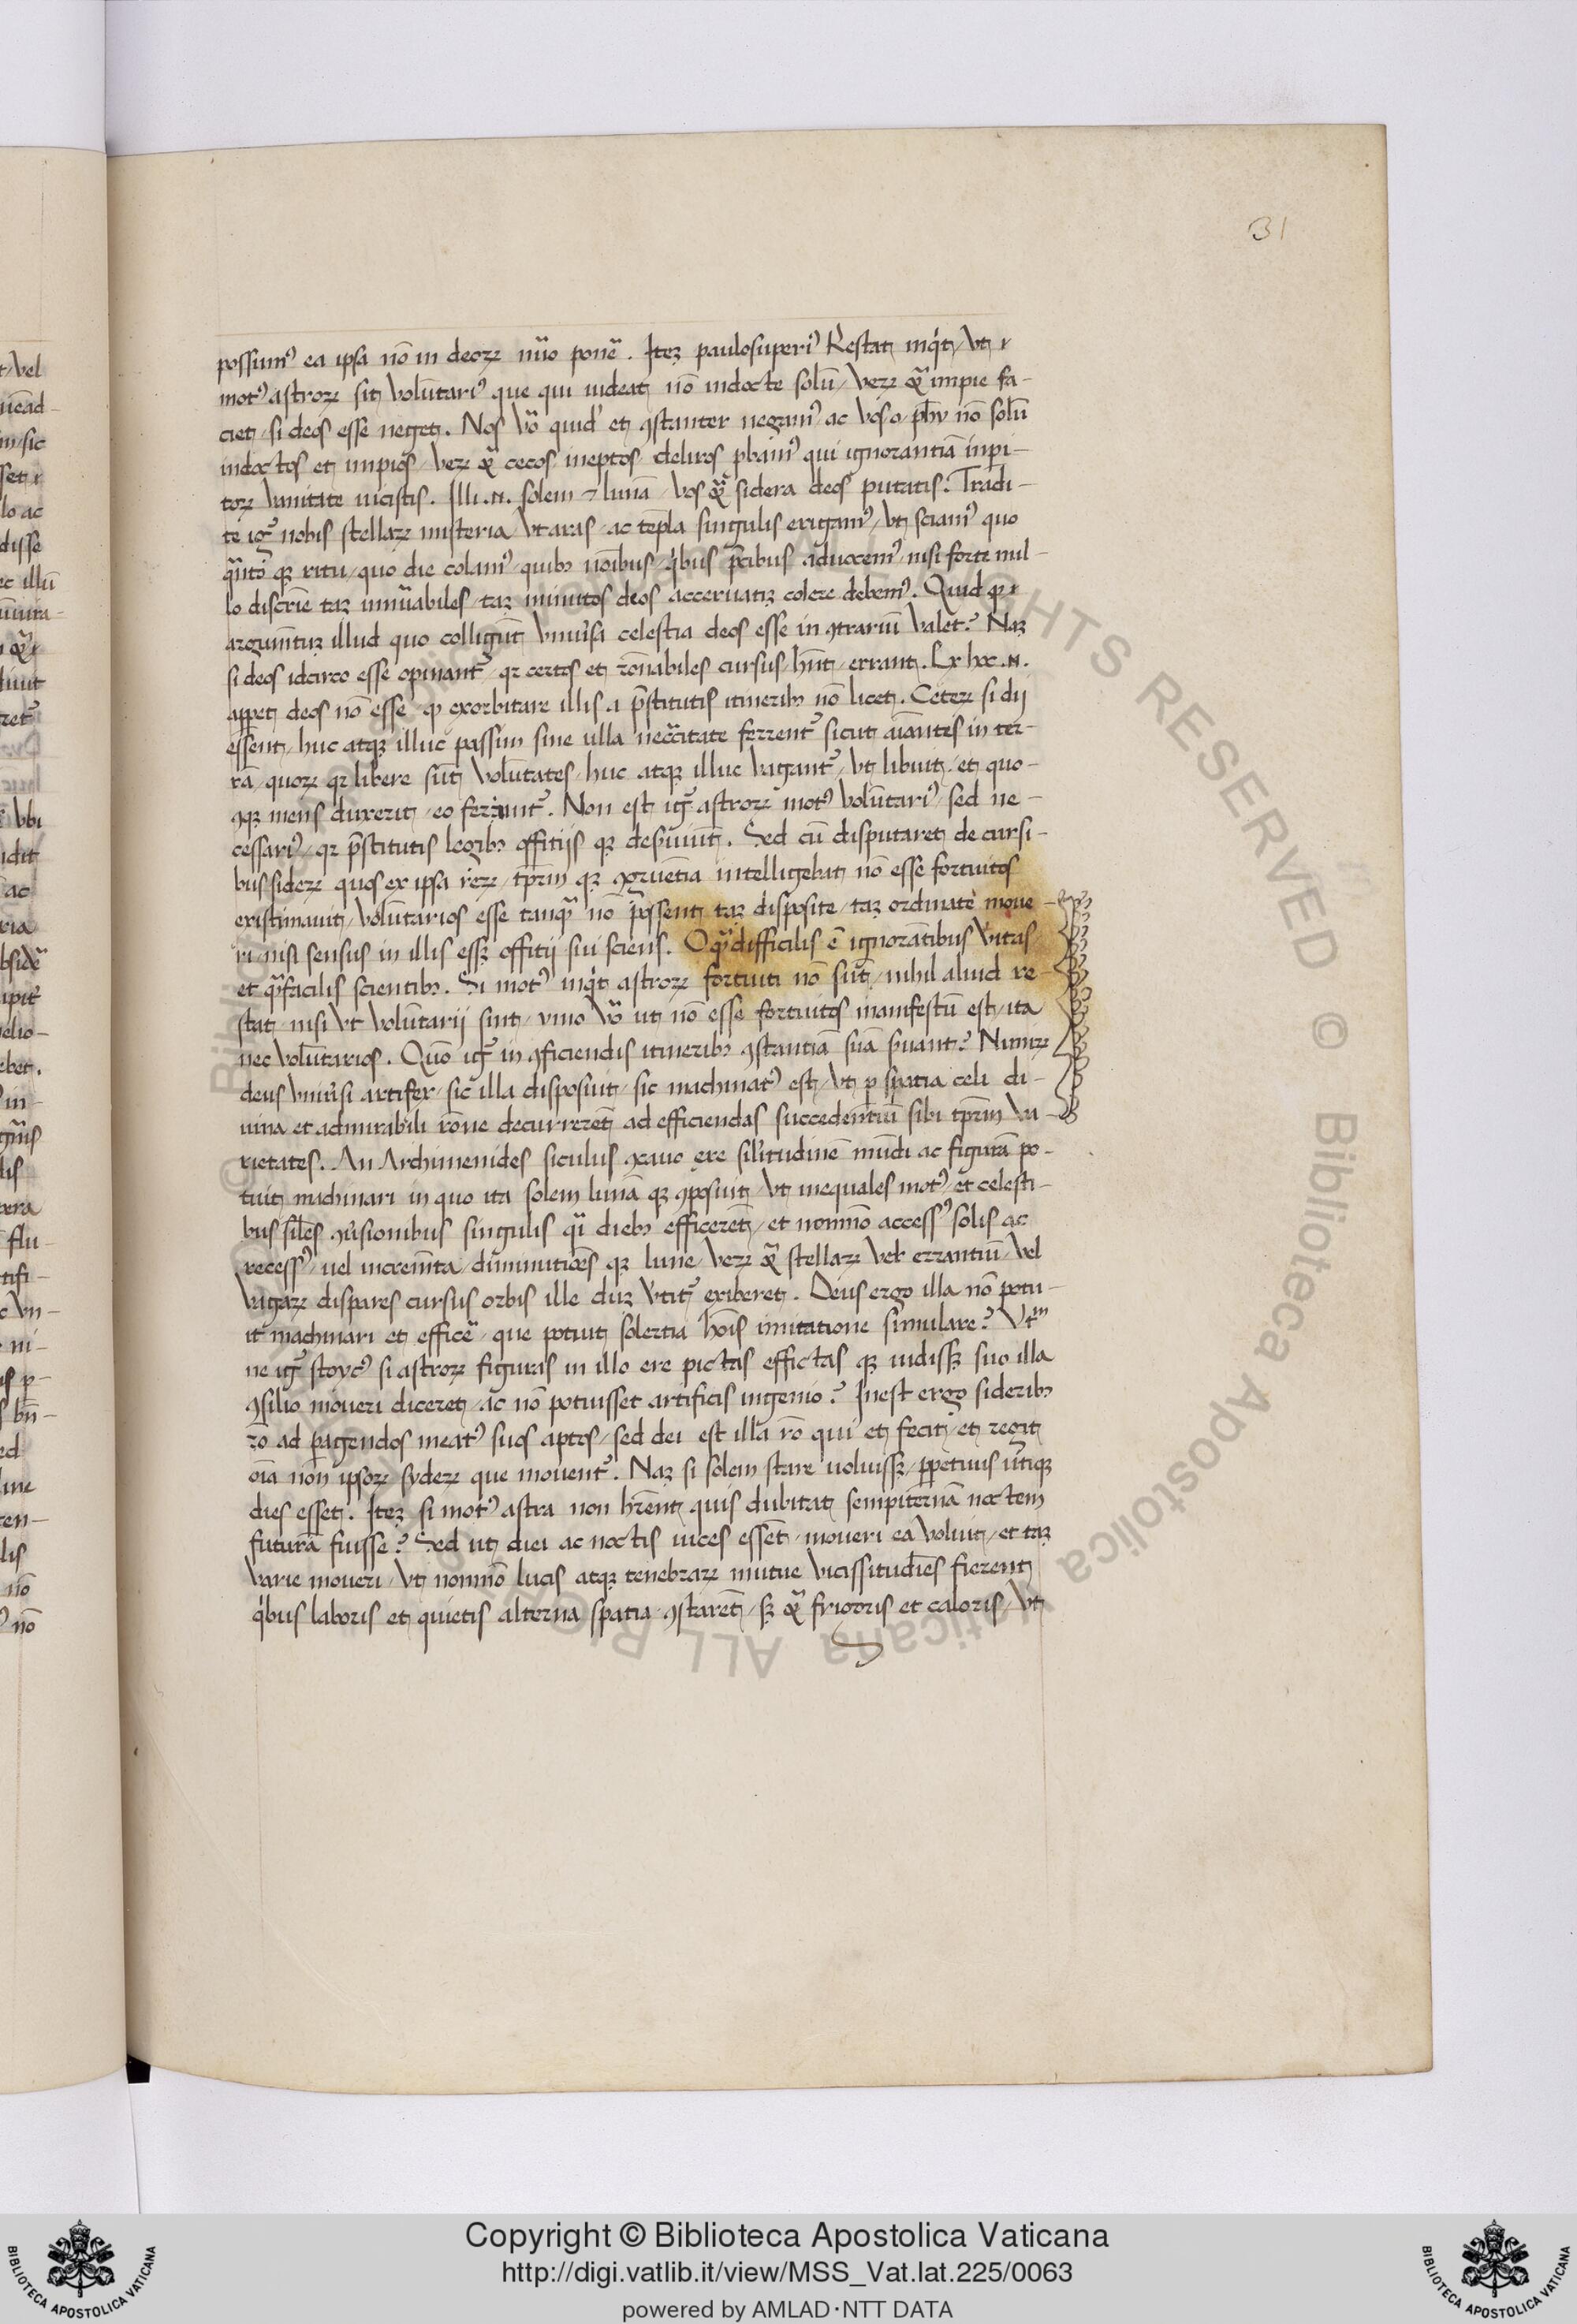 31
possumꝰ ea ipsa nō in deoꝝ nūo ponē. Iteꝫ paulosuperiꝰ Restat inqͥt / vt
motꝰ astroꝝ sit volūtariꝰ que qui uideat nō indocte solū / veꝝ qͣ impie fa-
ciet / si deos esse neget. Nos vō quidē et ꝯstanter negamꝰ ac vos o phy nō solū
indoctos et impios / veꝝ qͣ cecos ineptos deliros pbamꝰ qui ignorantiā inpi-
toꝝ vanitate uicistis. Illi .n. solem ⁊ lunā / vos qͣ sidera deos putatis. Tradi-
te igͬ nobis stellaꝝ misteria / vt aras / ac tēpla singulis erigamꝰ / vt sciamꝰ quo
qͣnto qꝫ ritu / quo die colamꝰ / quibꝫ noībus / qͥbus p̄cibus aduocemꝰ / nisi forte nul-
lo discrīe taꝫ innūabiles / taꝫ minutos deos acceruatiꝫ colere debemꝰ. Quid qͩ
argumtuꝫ illud quo colligūt vniūsa celestia deos esse in ꝯtrariū valet? Naꝫ
si deos idcirco esse opinantᷣ / qꝛ certos et rōnabiles cursus hn̄t / errant. Ex hoc .n.
apparet deos nō esse qͩ exorbitare illis a p̄stitutis itineribꝫ nō licet. Ceteꝝ si dij
essent / huc atqꝫ illuc passim sine ulla necc̄itate ferrentᷣ sicut aīantes in ter-
ra / quoꝝ qꝛ libere sūt volūtates / huc atqꝫ illuc vagantᷣ / vt libuit / et quo-
ꝯqꝫ mens duxerit / eo feruntᷣ. Non est igͬ astroꝝ motꝰ volūtariꝰ / sed ne-
cessariꝰ / qꝛ p̄stitutis legibꝫ offitijs qꝫ deseruiūt. Sed cū disputaret de cursi-
bus sideꝝ quos ex ipsa reꝝ / tp̄rm qꝫ ꝯgruētia intelligebat nō esse fortuitos
existimauit / volūtarios esse tanqͣ nō possent taꝫ disposite / taꝫ ordinate moue-
ri nisi sensus in illis essꝫ offitij sui sciens. O qͣ difficilis ē ignorātibus vitas
et qͣ facilis scientibꝫ. Si motꝰ inqͥt astroꝝ fortuiti nō sūt / nihil aliud re-
stat / nisi vt volūtarij sint / ymo vō ut nō esse fortuitos manifestū est / ita
nec volūtarios. Quō igͬ in ꝯficiendis itineribꝫ ꝯstantiā suā ẜuant? Nimiꝝ
deus vniūsi artifex / sic illa disposuit / sic machinatꝰ est / vt p spatia celi di-
uina et admirabili rōne decurrerēt ad efficiendas succedentiū sibi tp̄rm va-
rietates. An Archimenides siculus ꝯcauo ere silitudinē mūdi ac figurā po-
tuit machinari in quo ita solem lunā qꝫ ꝯposuit / vt inequales motꝰ / et celesti-
bus sil̄es ꝯūsionibus singulis qͣi diebꝫ efficerēt / et nonmō accessꝰ solis ac
recessꝰ / uel incremta / diminutiōes qꝫ lune / veꝝ qͣ stellaꝝ vel errantiū / vel
vagaꝝ dispares cursus orbis ille duꝫ vtitᷣ exiberet. Deus ergo illa nō potu-
it machinari et efficē / que potuit solertia hōis imitatione simulare? Vtͫ
ne igͬ stoycꝰ si astroꝝ figuras in illo ere pictas effictas qꝫ uidissꝫ suo illa
ꝯsilio moueri diceret / ac nō potuisset artificis ingenio? Inest ergo sideribꝫ
rō ad pagendos meatꝰ suos aptos / sed dei est illa rō qui et fecit / et regit
oīa non ipsoꝝ sydeꝝ que mouentᷣ. Naꝫ si solem stare uoluissꝫ / perpetuus utiqꝫ
dies esset. Iteꝫ si motꝰ astra non hr̄ent quis dubitat sempiternā noctem
futurā fuisse? Sed ut diei ac noctis uices essēt / moueri ea voluit / et taꝫ
varie moueri / vt nonmō lucis atqꝫ tenebraꝝ mutue vicissitudīes fierent
qͥbus laboris et quietis alterna spatia ꝯstarēt / sꝫ qͣ frigoris et caloris / vt
Copyright © Biblioteca Apostolica Vaticana
http://digi.vatlib.it/view/MSS_Vat.lat.225/0063
powered by AMLAD·NTT DATA
BIBLIOTECA APOSTOLICA VATICANA
BIBLIOTECA APOSTOLICA VATICANA